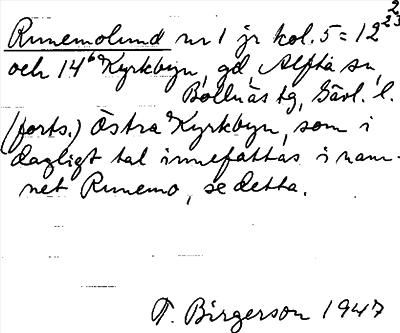 Runemolund nr 1 jr kol. 5 = 12 2-23
och 14⁶ Kyrkbyn, gd, Alfta sn,
Bollnäs tg, Gävl. l.
(forts.) Östra Kyrkbyn, som i
dagligt tal innefattas i nam-
net Runemo, se detta.
T. Birgerson 1947